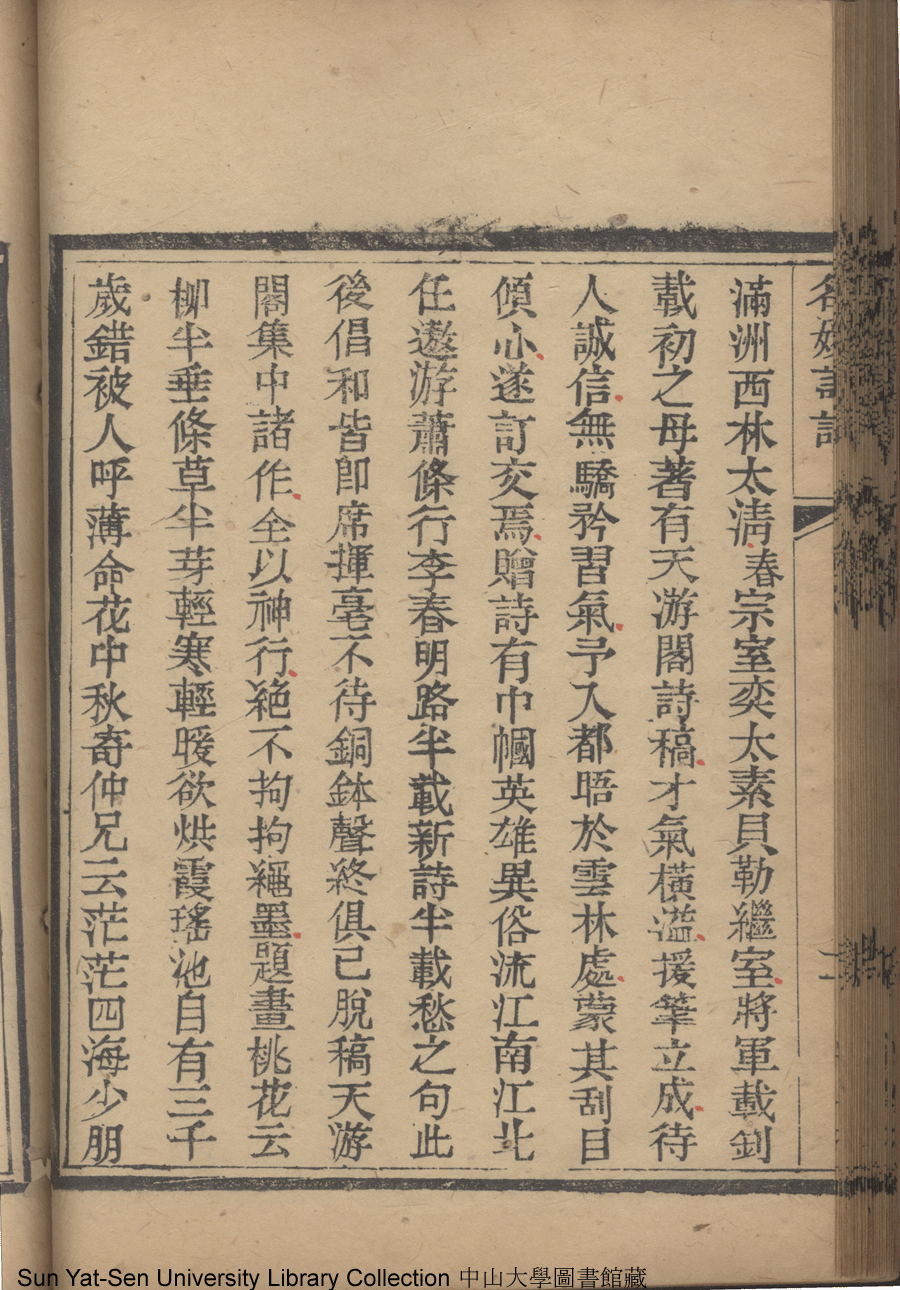 名媛詩話
滿洲西林太淸春宗室奕太素貝勒繼室將軍載釗
載初之母著有天游閣詩稿才氣橫溢援筆立成待
人誠信無驕矜習氣予入都晤於雲林處蒙其刮目
傾心遂訂交焉贈詩有巾幗英雄異俗流江南江北
任遨游蕭條行李春明路半載新詩半載愁之句此
後倡和皆卽席揮毫不待銅鉢聲終俱已脫稿天游
閣集中諸作全以神行絕不拘拘繩墨題畫桃花云
柳半垂條草半芽輕寒輕暖欲烘霞瑤池自有三千
歲錯被人呼薄命花中秋寄仲兄云茫茫四海少朋
Sun Yat-Sen University Library Collection 中山大學圖書館藏